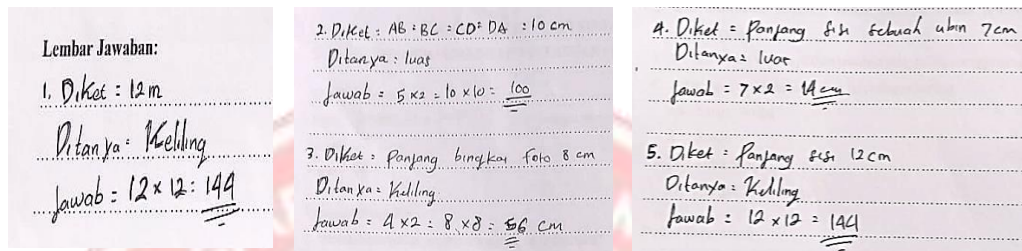 Lembar Jawaban:
1. Diket : 12 m
Ditanya = Keliling
Jawab = 12 x 12 : 144
2. Diket : AB = BC = CD = DA : 10 cm
Ditanya : luas
Jawab = 5 x 2 = 10 x 10 = 100
3. Diket = Panjang bingkai foto 8 cm
Ditanya = Keliling
Jawab = 4 x 2 : 8 x 8 = 56 cm
4. Diket = Panjang sisi sebuah ubin 7 cm
Ditanya = luas
Jawab = 7 x 2 = 14 cm
5. Diket = Panjang sisi 12 cm
Ditanya = Keliling
Jawab = 12 x 12 = 144